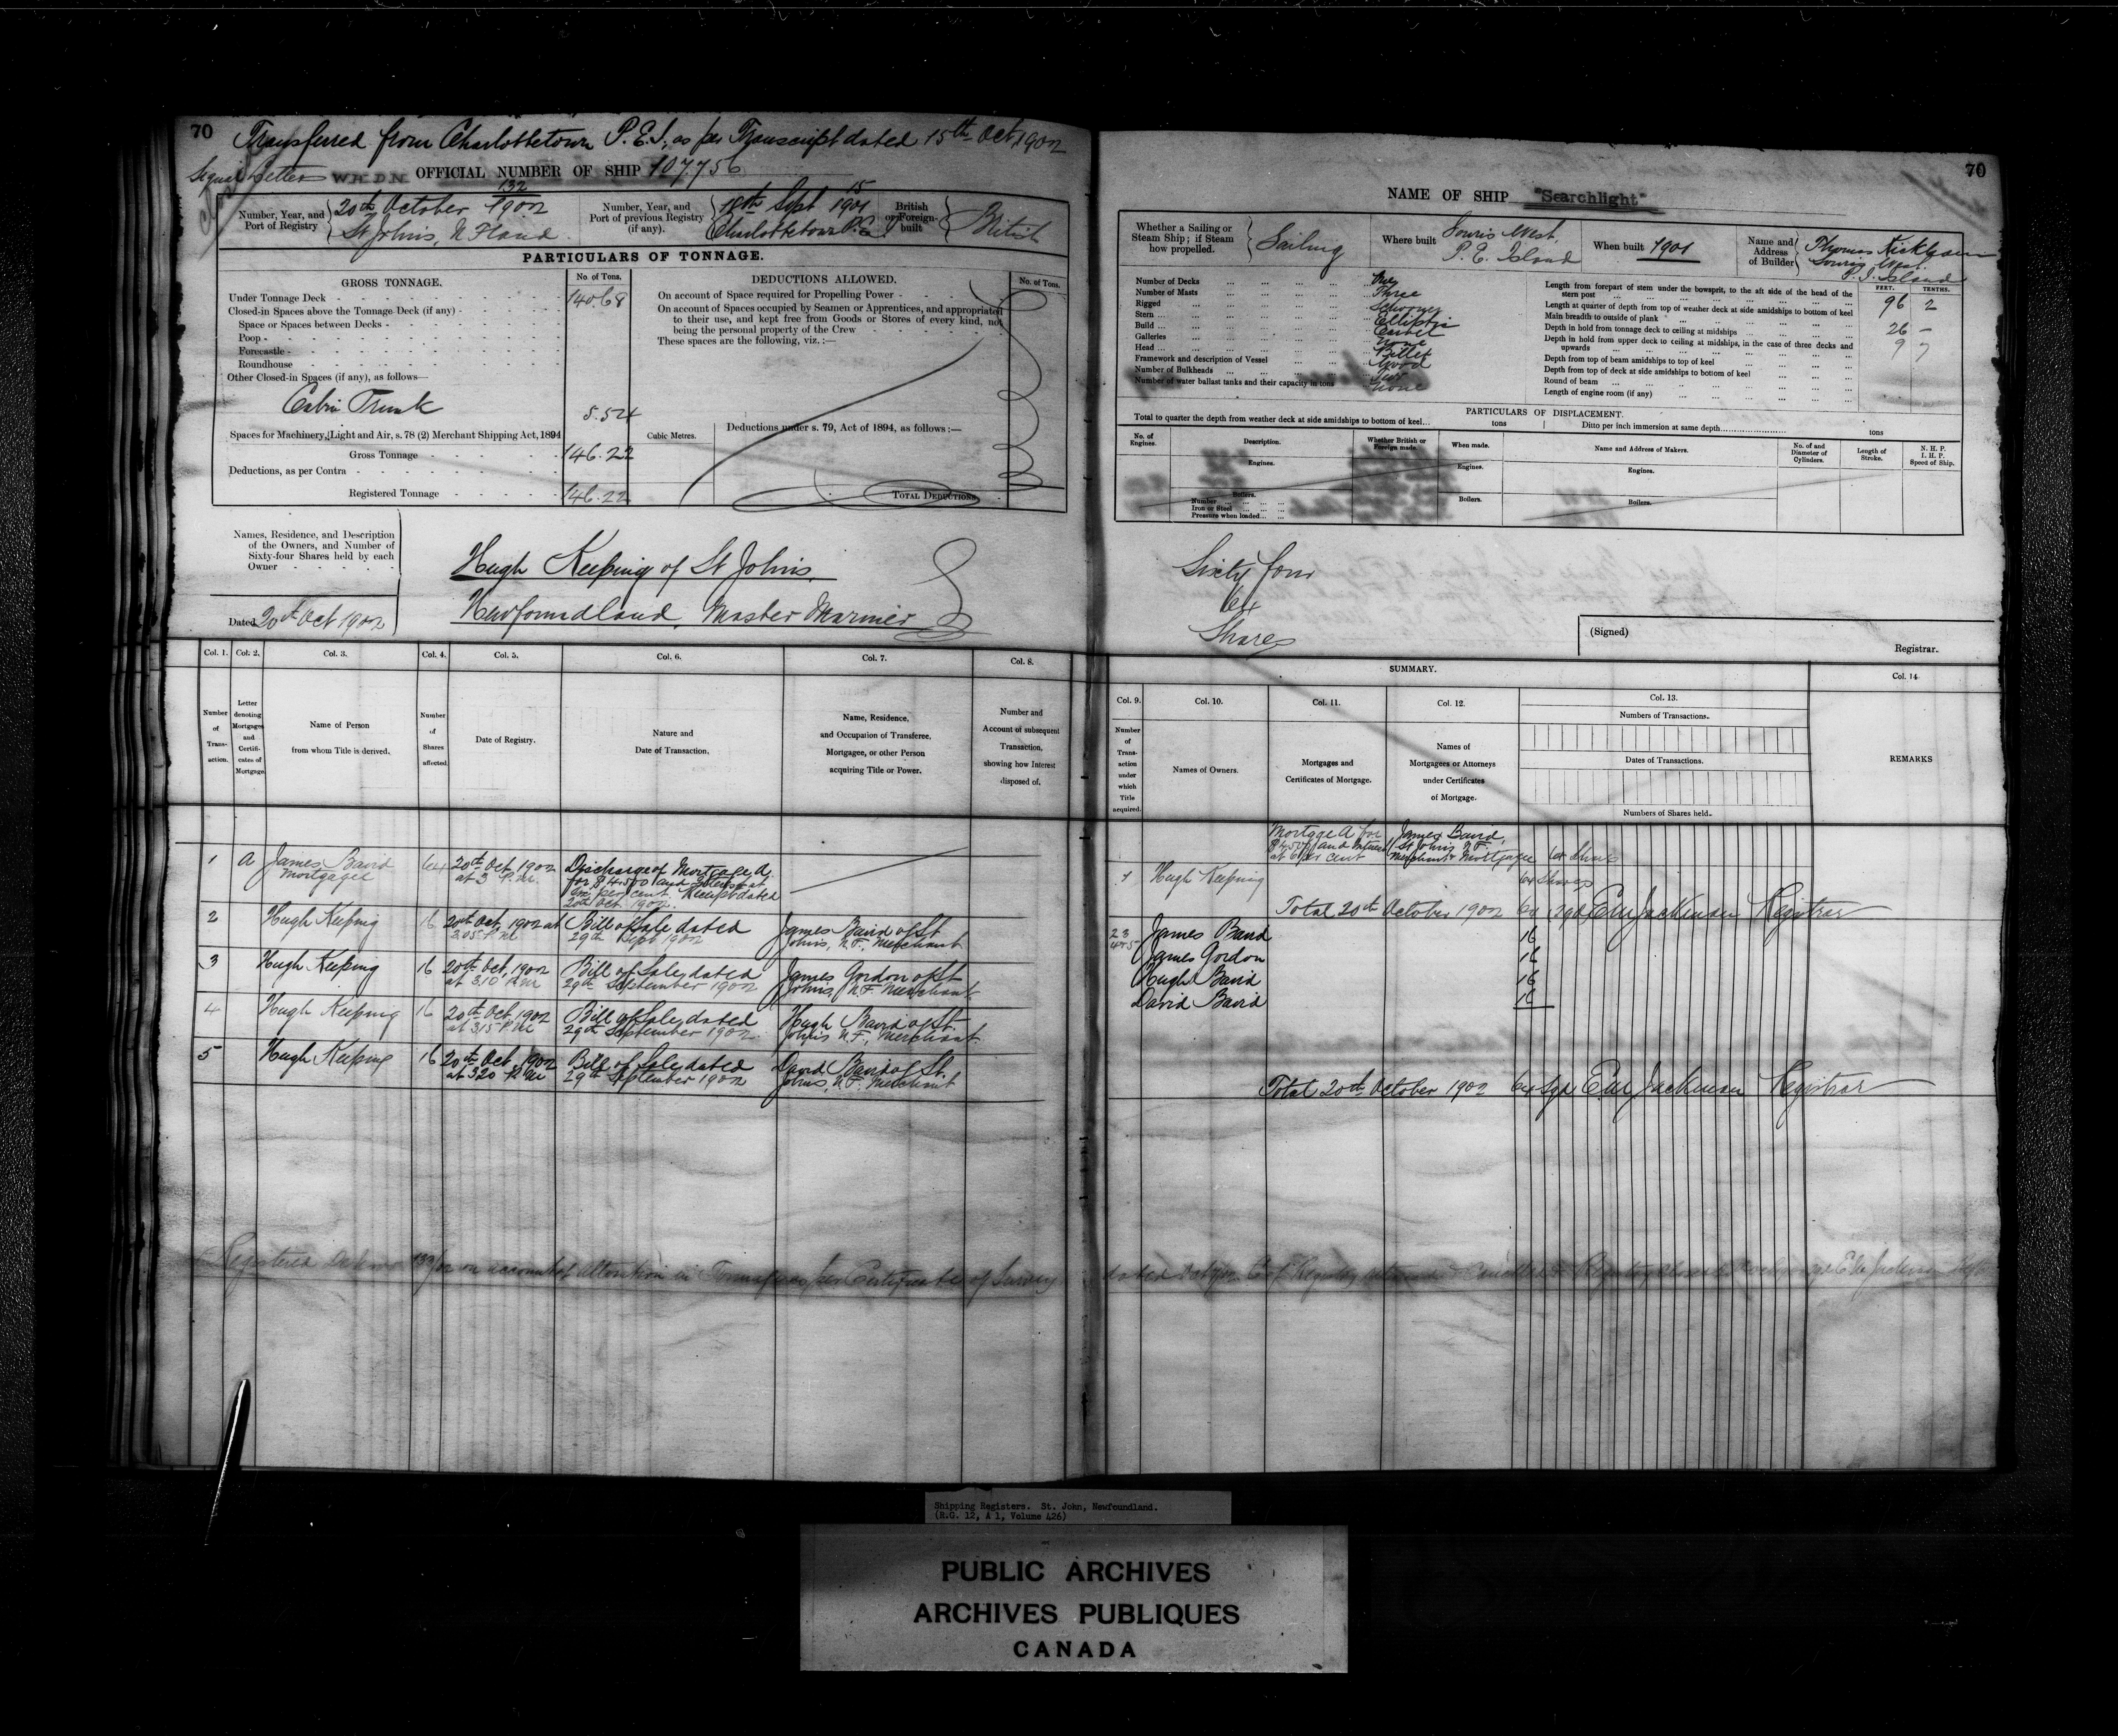 70
Transferred from Charlottetown P.E.I, as per Transcript dated 15th Oct 1902
Signal Letters W.H.D.N. OFFICIAL NUMBER OF SHIP 107.756
Number, Year, and Port of Registry
132
20th October 1902
St Johns, N Fland
Number, Year, and Port of previous Registry (if any).
15
18th Sept 1901
Charlottetown P.E.I
British or Foreign-built
British
PARTICULARS OF TONNAGE.
GROSS TONNAGE.
No. of Tons.
Under Tonnage Deck 140.68
Closed-in Spaces above the Tonnage Deck (if any)
Space or Spaces between Decks
Poop
Forecastle
Roundhouse
Other Closed-in Spaces (if any), as follows—
Cabin Trunk 5.54
Spaces for Machinery, Light and Air, s. 78 (2) Merchant Shipping Act, 1894
Cubic Metres.
Gross Tonnage 146.22
Deductions, as per Contra
Registered Tonnage 146.22
DEDUCTIONS ALLOWED.
No. of Tons.
On account of Space required for Propelling Power
On account of Spaces occupied by Seamen or Apprentices, and appropriated
to their use, and kept free from Goods or Stores of every kind, not
being the personal property of the Crew
These spaces are the following, viz. :—
Deductions under s. 79, Act of 1894, as follows :—
TOTAL DEDUCTIONS
Names, Residence, and Description
of the Owners, and Number of
Sixty-four Shares held by each
Owner
Dated 20th Oct 1902
Hugh Keeping of St Johns.
Newfoundland, Master Mariner
Col. 1. Col. 2. Col. 3. Col. 4. Col. 5. Col. 6. Col. 7. Col. 8.
Number of Transaction.
Letter denoting Mortgages and Certificates of Mortgage.
Name of Person from whom Title is derived.
Number of Shares affected.
Date of Registry.
Nature and Date of Transaction.
Name, Residence, and Occupation of Transferee, Mortgagee, or other Person acquiring Title or Power.
Number and Account of subsequent Transaction, showing how Interest disposed of.
1 A James Baird Mortgagee 64 20th Oct 1902 at 3 P.M. Discharge of Mortgage A. for $4500 and Interest at six per cent. Receipt dated 20th Oct. 1902.
2 Hugh Keeping 16 20th Oct, 1902 at 3.05 P.M Bill of Sale dated 29th Sept 1902 James Baird of St Johns, N.F., Merchant
3 Hugh Keeping 16 20th Oct, 1902 at 3.10 P.M Bill of Sale, dated 29th September 1902 James Gordon of St Johns, N.F. Merchant
4 Hugh Keeping 16 20th Oct, 1902 at 3.15 P.M Bill of Sale, dated 29th September 1902. Hugh Baird of St. Johns N.F., Merchant
5 Hugh Keeping 16 20th Oct, 1902 at 3.20 P.M Bill of Sale, dated 29th September 1902 David Baird of St. Johns, N.F. Merchant
Registered on account of alteration in Tonnage as per Certificate of Survey
70
NAME OF SHIP "Searchlight"
Whether a Sailing or Steam Ship; if Steam how propelled.
Sailing
Where built
Souris West,
P. E. Island
When built 1901
Name and Address of Builder
Souris West.
P. E. Island
Number of Decks One
Number of Masts Three
Rigged Schooner
Stern Elliptic
Build Carvel
Galleries None
Head Billet
Framework and description of Vessel Wood
Number of Bulkheads
Number of water ballast tanks and their capacity in tons None
FEET. TENTHS.
Length from forepart of stem under the bowsprit, to the aft side of the head of the stern post 96 2
Length at quarter of depth from top of weather deck at side amidships to bottom of keel
Main breadth to outside of plank 26 -
Depth in hold from tonnage deck to ceiling at midships 9 7
Depth in hold from upper deck to ceiling at midships, in the case of three decks and upwards
Depth from top of beam amidships to top of keel
Depth from top of deck at side amidships to bottom of keel
Round of beam
Length of engine room (if any)
PARTICULARS OF DISPLACEMENT.
Total to quarter the depth from weather deck at side amidships to bottom of keel... tons
Ditto per inch immersion at same depth tons
No. of Engines.
Description.
Whether British or Foreign made.
When made.
Name and Address of Makers.
No. of and Diameter of Cylinders.
Length of Stroke.
N. H. P.
I. H. P.
Speed of Ship.
Engines. Engines. Engines.
Boilers. Boilers. Boilers.
Number
Iron or Steel
Pressure when loaded
Sixty four
64
Shares
(Signed)
Registrar.
SUMMARY.
Col. 9. Col. 10. Col. 11. Col. 12. Col. 13. Col. 14.
Number of Transaction under which Title acquired.
Names of Owners.
Mortgages and Certificates of Mortgage.
Names of Mortgagees or Attorneys under Certificates of Mortgage.
Numbers of Transactions.
Dates of Transactions.
Numbers of Shares held.
REMARKS
Mortgage A for $4500 and Interest at 6 per cent
James Baird, St Johns N.F. Merchant Mortgagee 64 Shares
1 Hugh Keeping 64 Shares
Total 20th October 1902 64 Registrar
2 3 James Baird 16
4 & 5 James Gordon 16
Hugh Baird 16
David Baird 16
Total 20th October 1902 64 Sgd Registrar
Shipping Registers. St. John, Newfoundland.
(R.G. 12, A 1, Volume 426)
PUBLIC ARCHIVES
ARCHIVES PUBLIQUES
CANADA